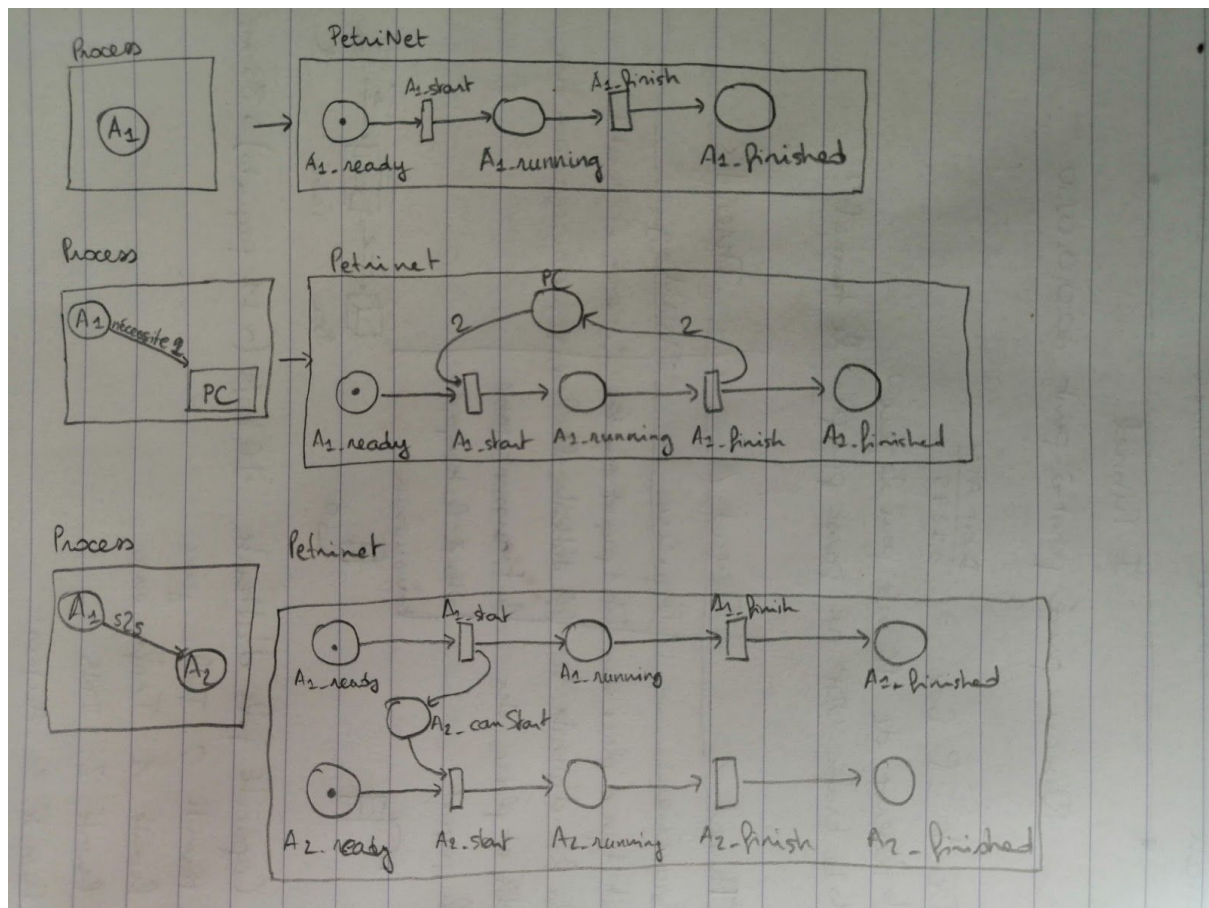 Process
PetriNet
A1
A1_start
A1_finish
A1_ready
A1_running
A1_finished
Process
Petrinet
A1
nécessite 2
PC
PC
2
2
A1_ready
A1_start
A1_running
A1_finish
A1_finished
Process
Petrinet
A1
s2s
A2
A1_start
A1_finish
A1_ready
A1_running
A1_finished
A2_canStart
A2_ready
A2_start
A2_running
A2_finish
A2_finished